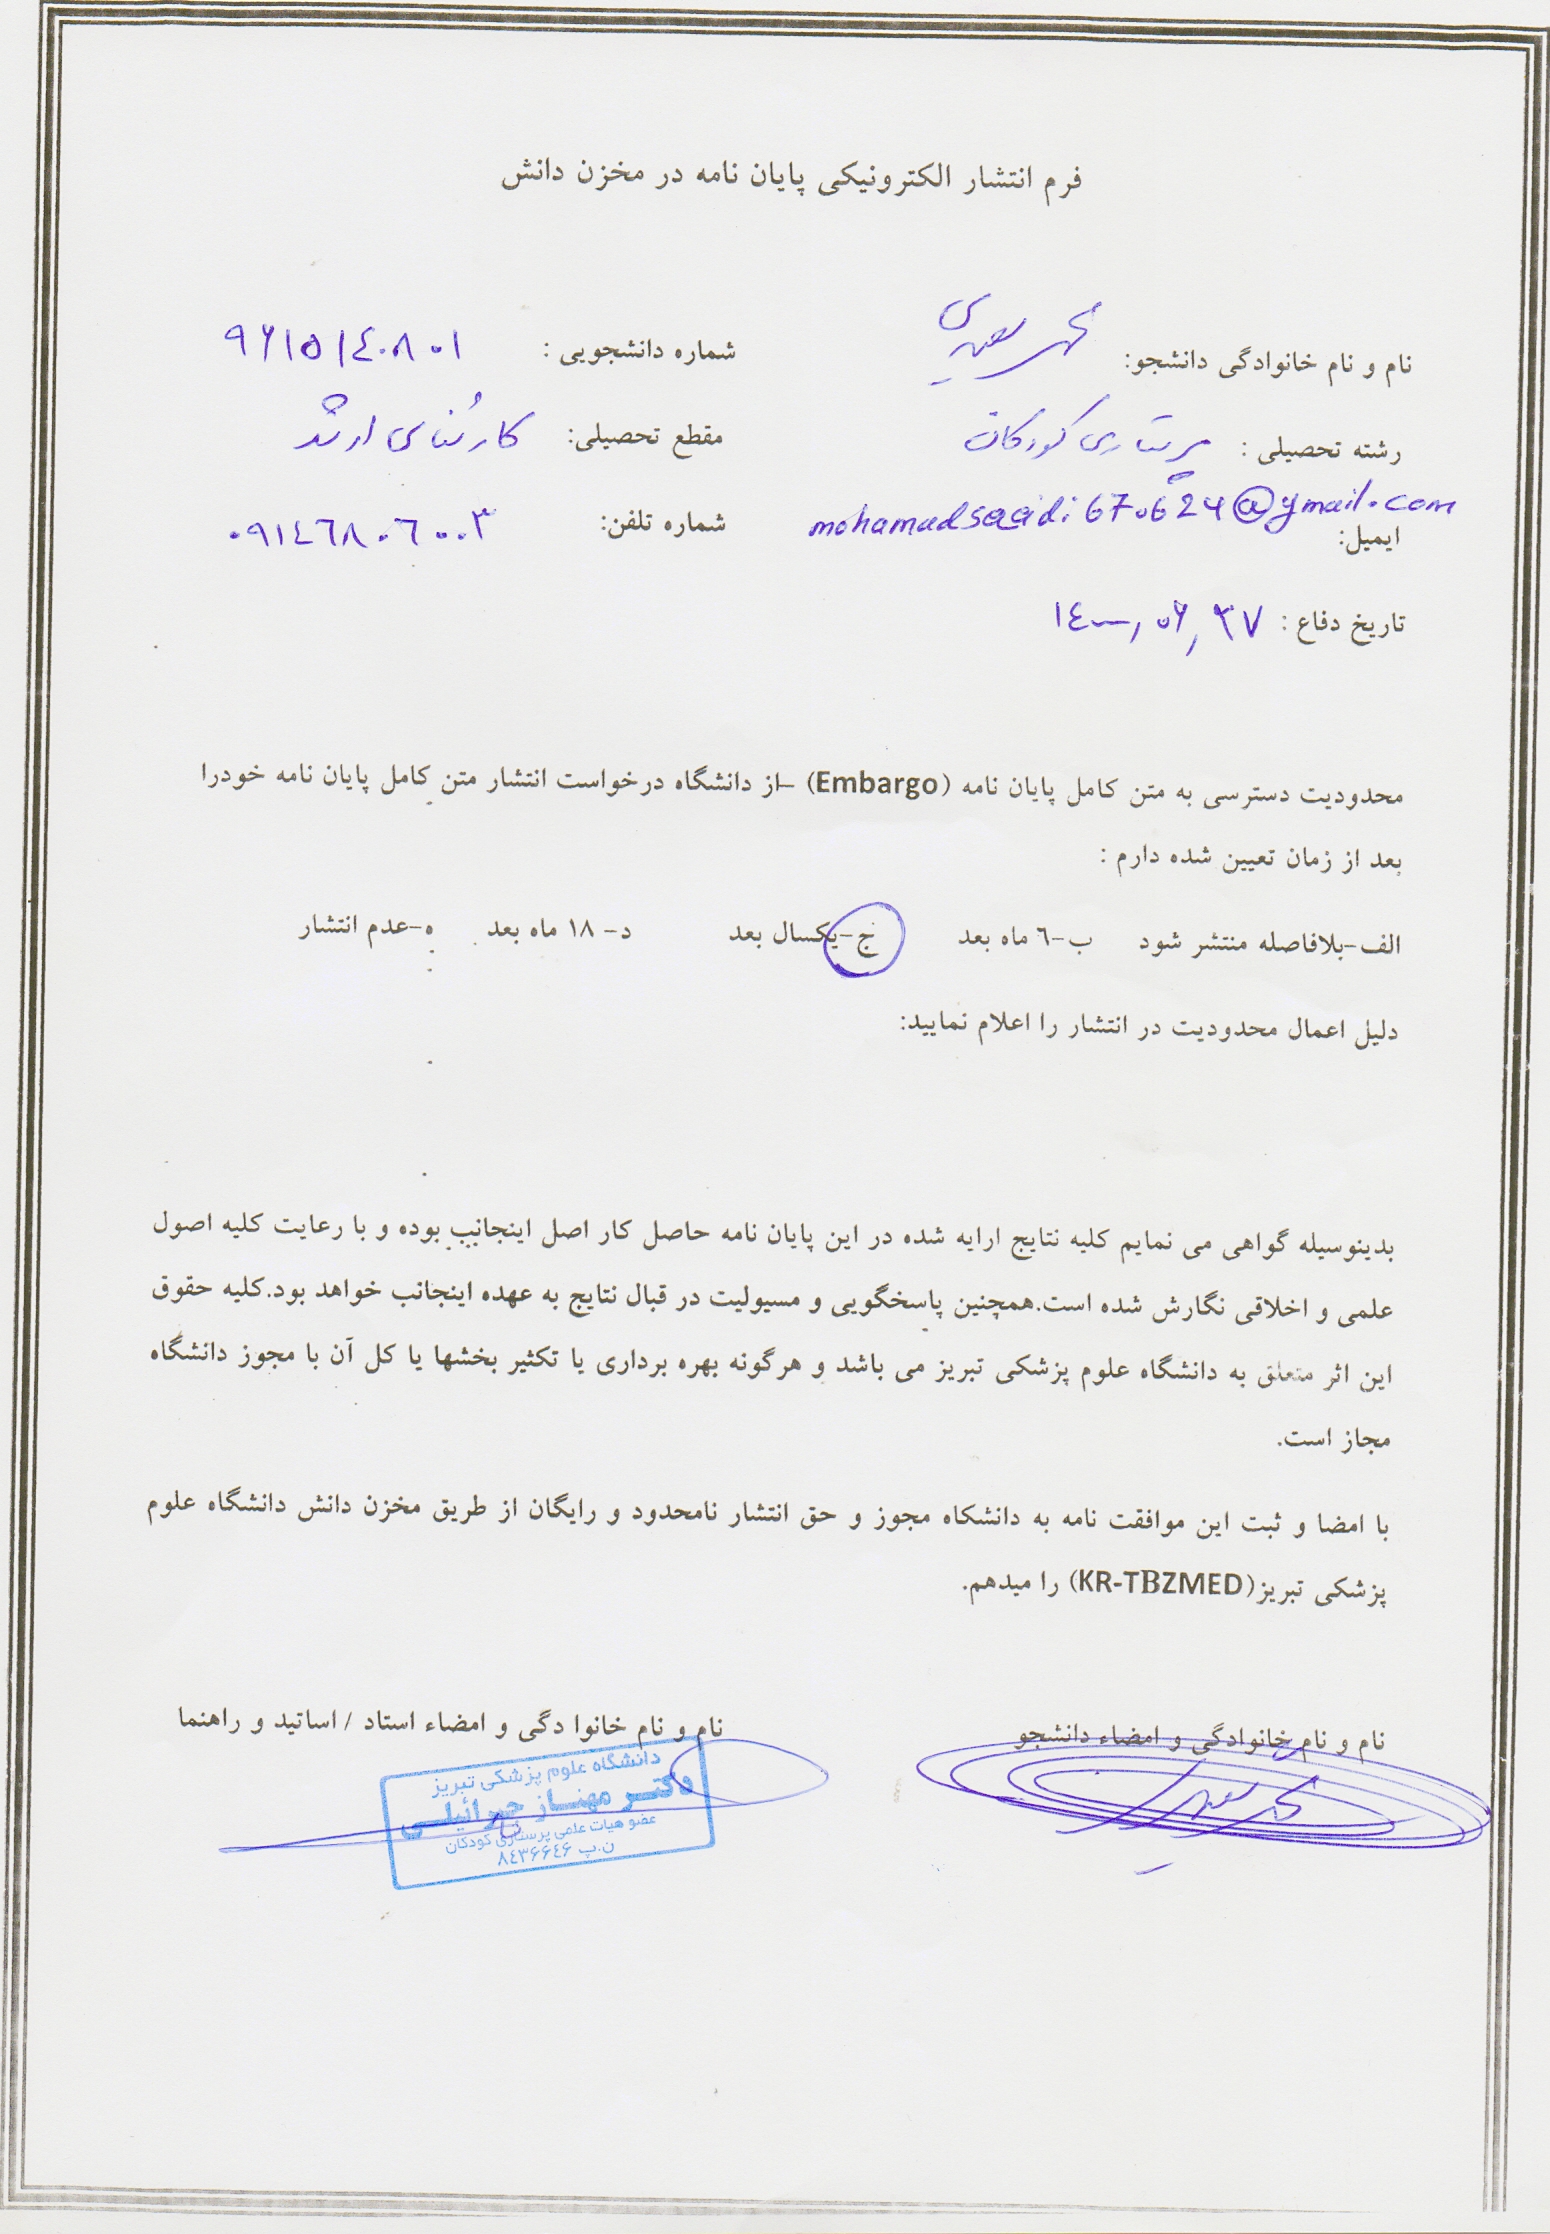 فرم انتشار الکترونیکی پایان نامه در مخزن دانش
نام و نام خانوادگی دانشجو: محمد سعیدی شماره دانشجویی : ۹۶۱۵۱۴۰۸۰۱
رشته تحصیلی : پرستاری کودکان مقطع تحصیلی: کارشناسی ارشد
ایمیل: mohamadsaaidi670624@gmail.com شماره تلفن: ۰۹۱۴۶۸۰۶۰۰۳
تاریخ دفاع :
محدودیت دسترسی به متن کامل پایان نامه (Embargo) –از دانشگاه درخواست انتشار متن کامل پایان نامه خودرا
بعد از زمان تعیین شده دارم :
الف-بلافاصله منتشر شود ب-٦ ماه بعد ج-یکسال بعد د- ۱۸ ماه بعد ه-عدم انتشار
دلیل اعمال محدودیت در انتشار را اعلام نمایید:
بدینوسیله گواهی می نمایم کلیه نتایج ارایه شده در این پایان نامه حاصل کار اصل اینجانب بوده و با رعایت کلیه اصول
علمی و اخلاقی نگارش شده است.همچنین پاسخگویی و مسیولیت در قبال نتایج به عهده اینجانب خواهد بود.کلیه حقوق
این اثر متعلق به دانشگاه علوم پزشکی تبریز می باشد و هرگونه بهره برداری یا تکثیر بخشها یا کل آن با مجوز دانشگاه
مجاز است.
با امضا و ثبت این موافقت نامه به دانشکاه مجوز و حق انتشار نامحدود و رایگان از طریق مخزن دانش دانشگاه علوم
پزشکی تبریز(KR-TBZMED) را میدهم.
نام و نام خانوادگی و امضاء دانشجو نام و نام خانوا دگی و امضاء استاد / اساتید و راهنما
محمد سعیدی
دانشگاه علوم پزشکی تبریز
دکتر مهناز جبرائیلی
عضو هیات علمی پرستاری کودکان
ن.پ ۸۴۳۶۶۴۶